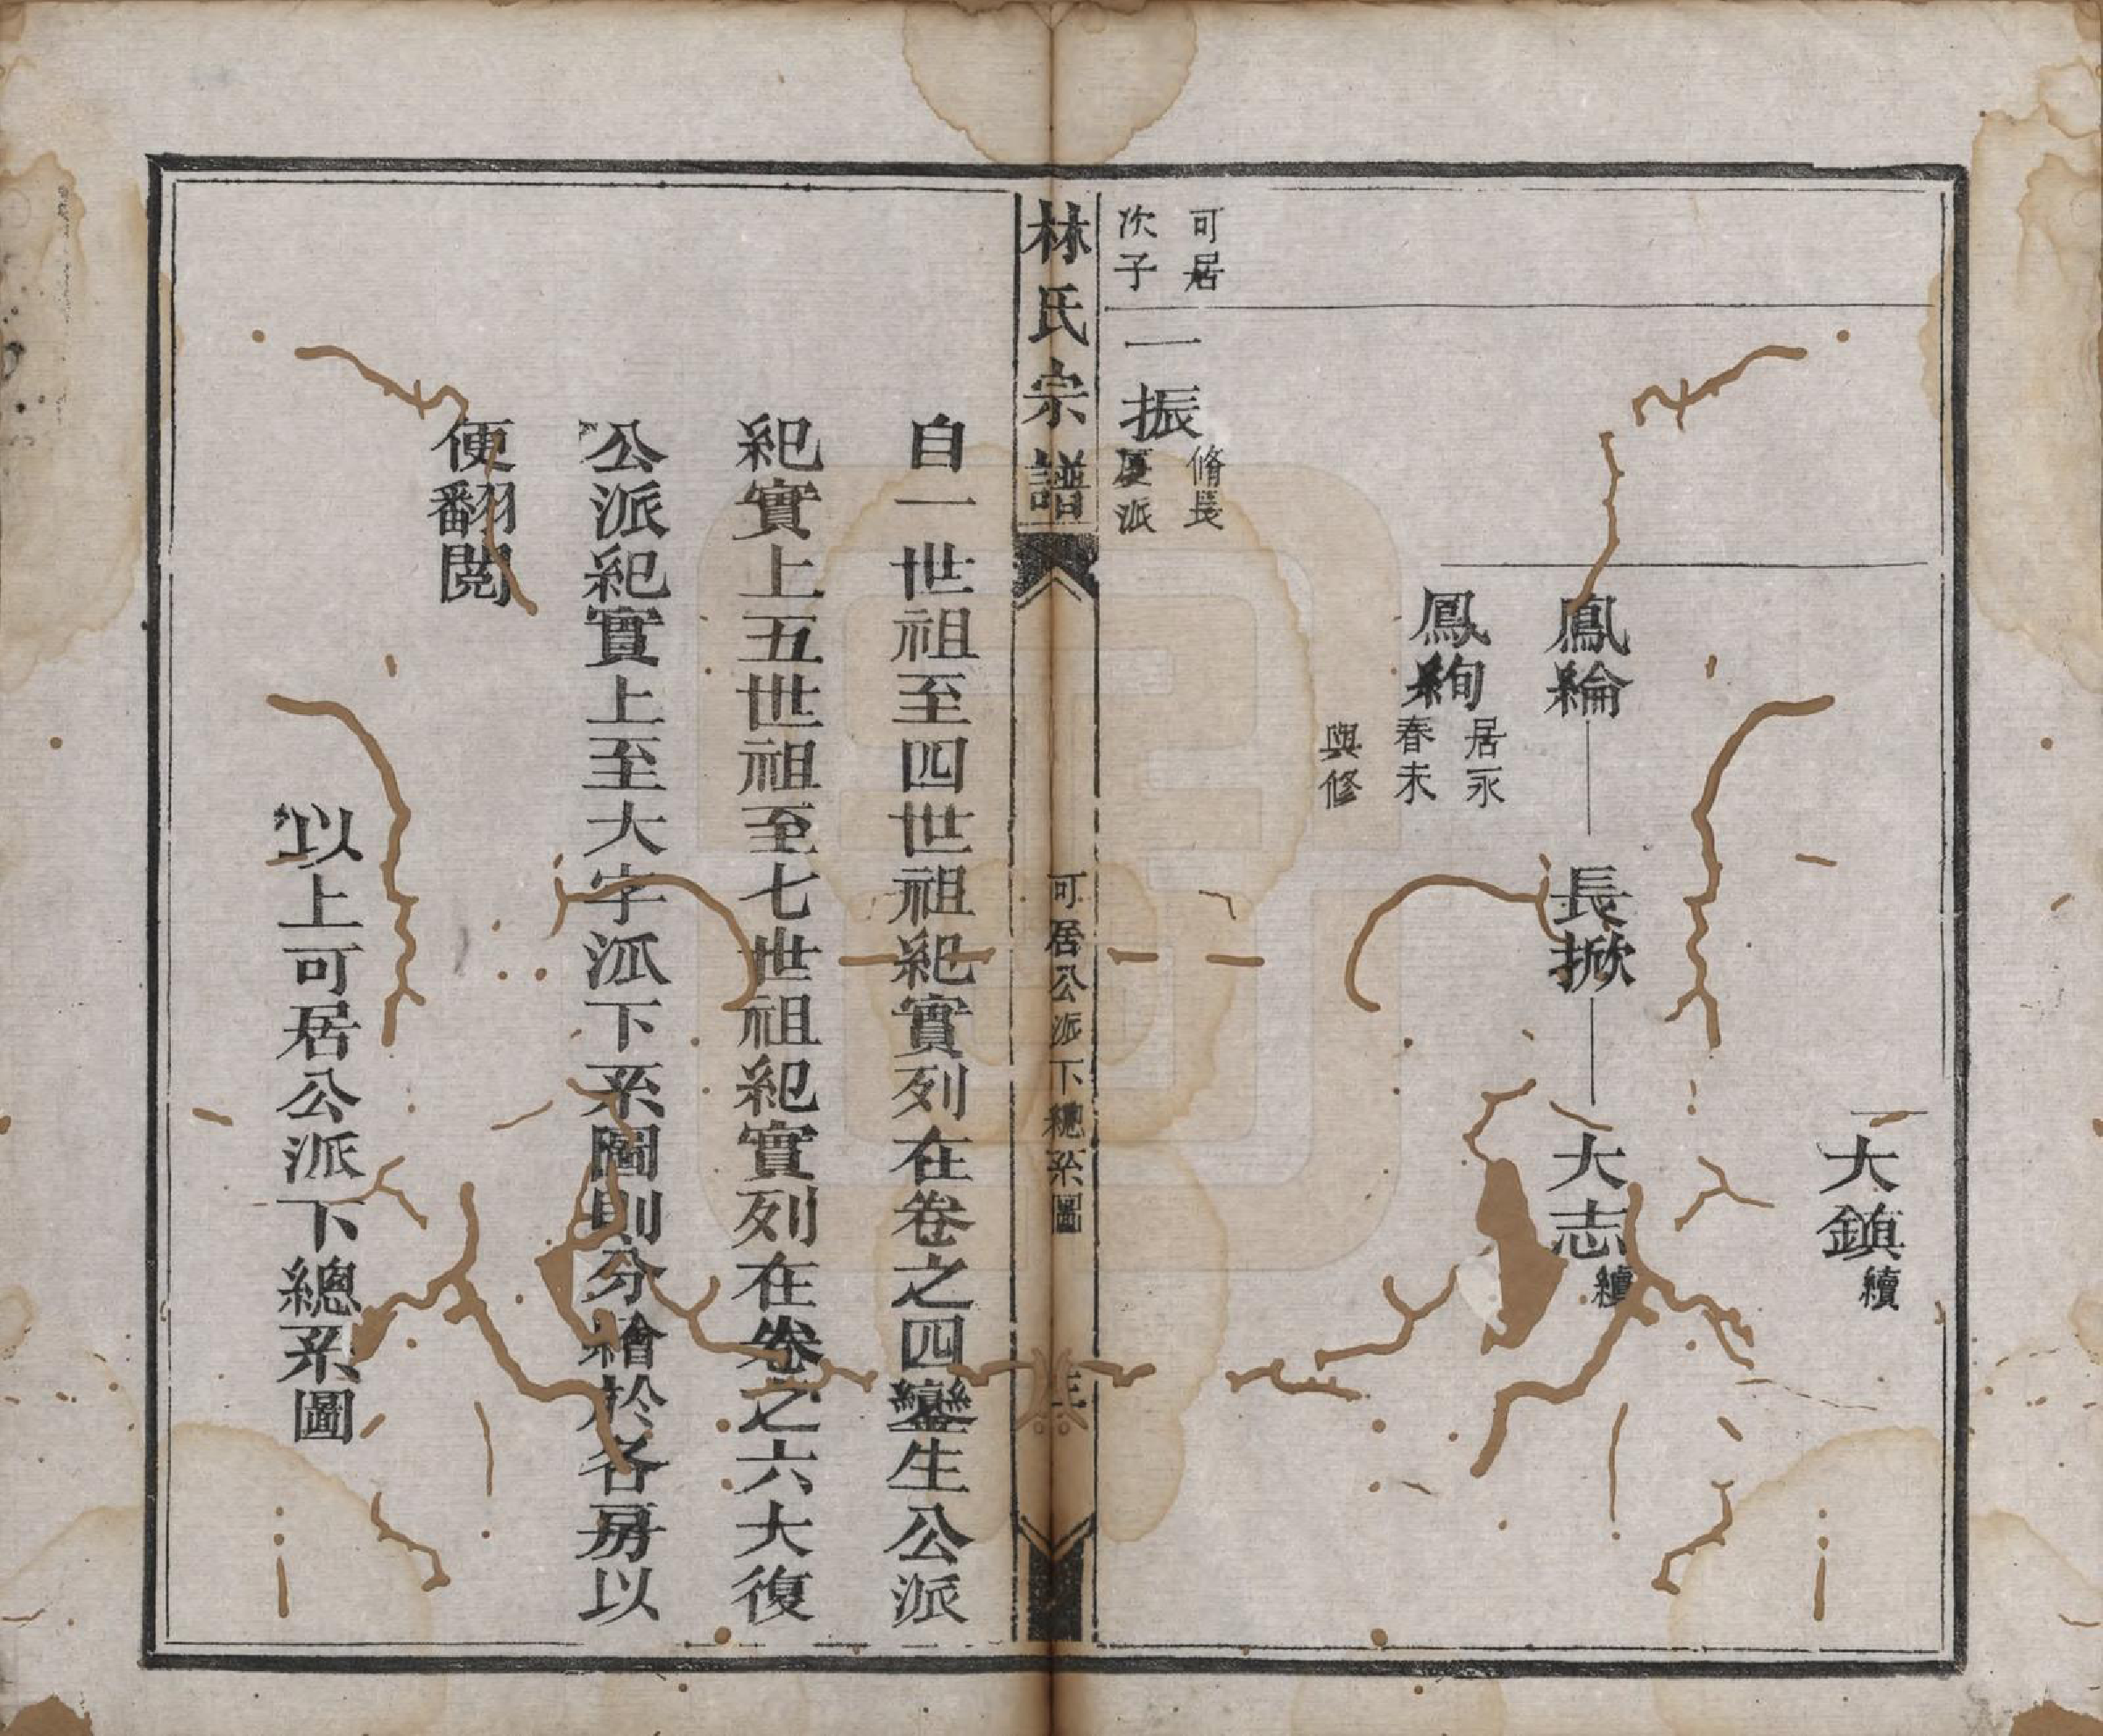 大鎮續
鳳綸
長掀
大志續
鳳絢
居永
春未
與修
可居
次子
一振
脩長
厦派
林氏宗譜
可居公派下總系圖
自一世祖至四世祖紀實列在卷之四鑾生公派
紀實上五世祖至七世祖紀實列在卷之六大復
公派紀實上至大字派下系圖則分繪於各房以
便翻閱
以上可居公派下總系圖